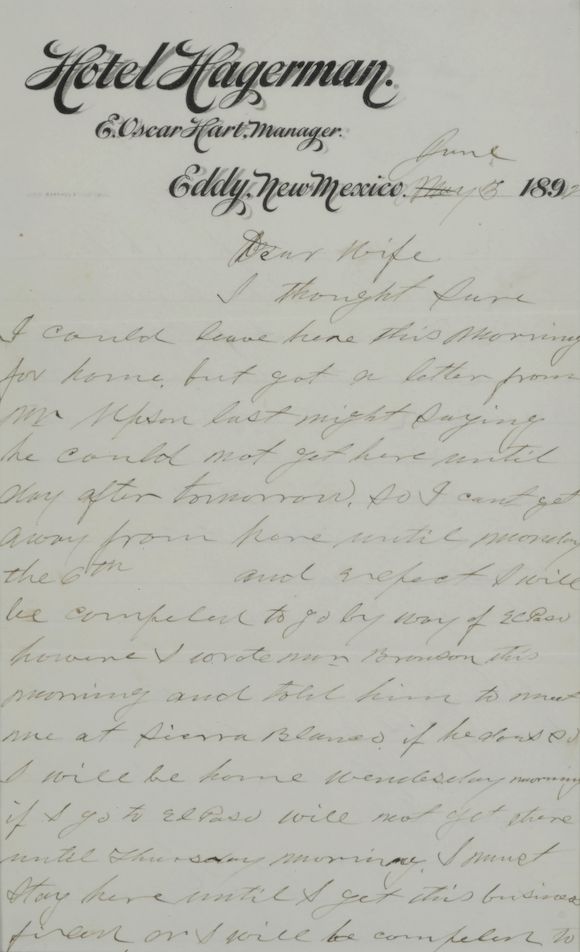 Hotel Hagerman.
E. Oscar Hart, Manager.
June
Eddy, New Mexico. May 3 1892
Dear Wife
I thought Sure
I could leave here this Morning
for home. but got a letter from
Mr Upson last night Saying
he could not get here until
day after tomorrow. So I cant get
away from here until monday
the 6th and expect I will
be compeled to go by way of El Paso
howere I wrote mr Bronson this
morning and told him to meet
me at Sierra Blanco. if he does so
I will be home wendesday morning
if I go to El Paso will not get there
until Thursday morning. I must
Stay here until I get this business
fixed or I will be compeled to